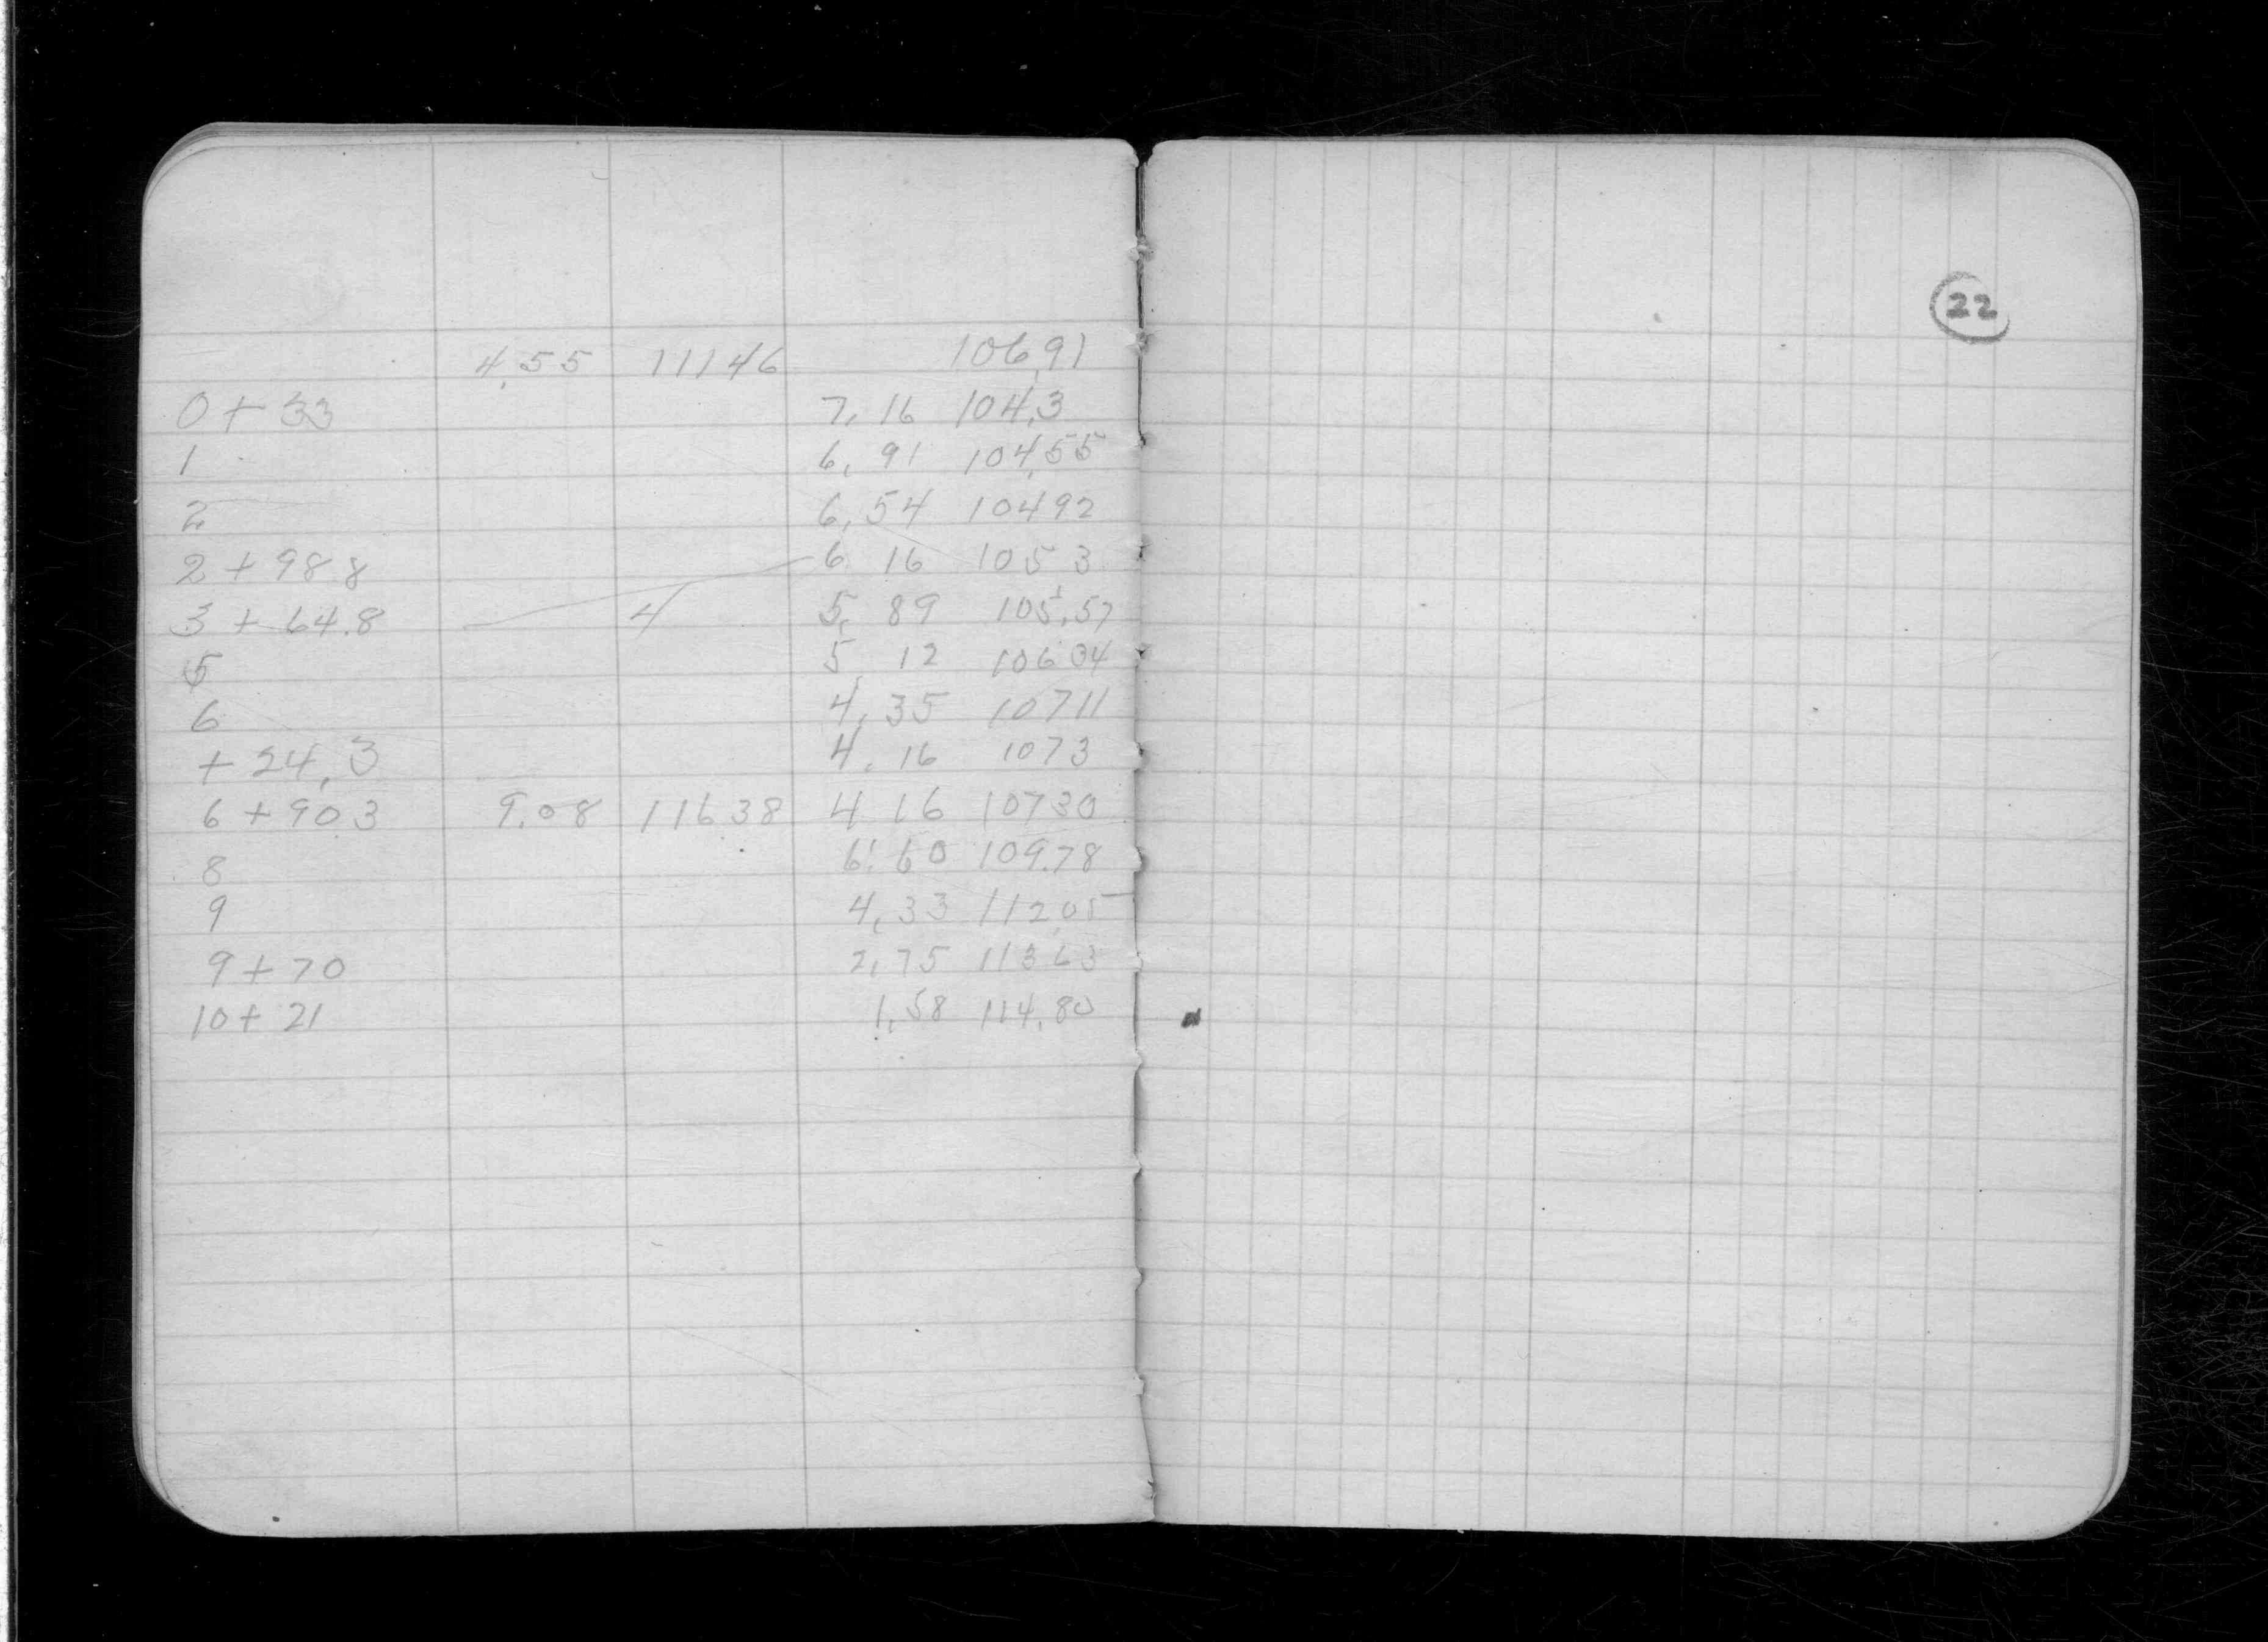 4.55 11146 106.91
0 + 33 7.16 104.3
1 6.91 104.55
2 6.54 10492
2 + 98.8 6 16 105 3
3 + 64.8 4 5. 89 105.57
5 5 12 106 34
6 4.35 10711
+ 24.3 4.16 1073
6 + 90.3 9.08 11638 4 16 10730
8 6.60 109.78
9 4.33 112.05
9 + 70 2.75 11363
10 + 21 1.58 114.80
22